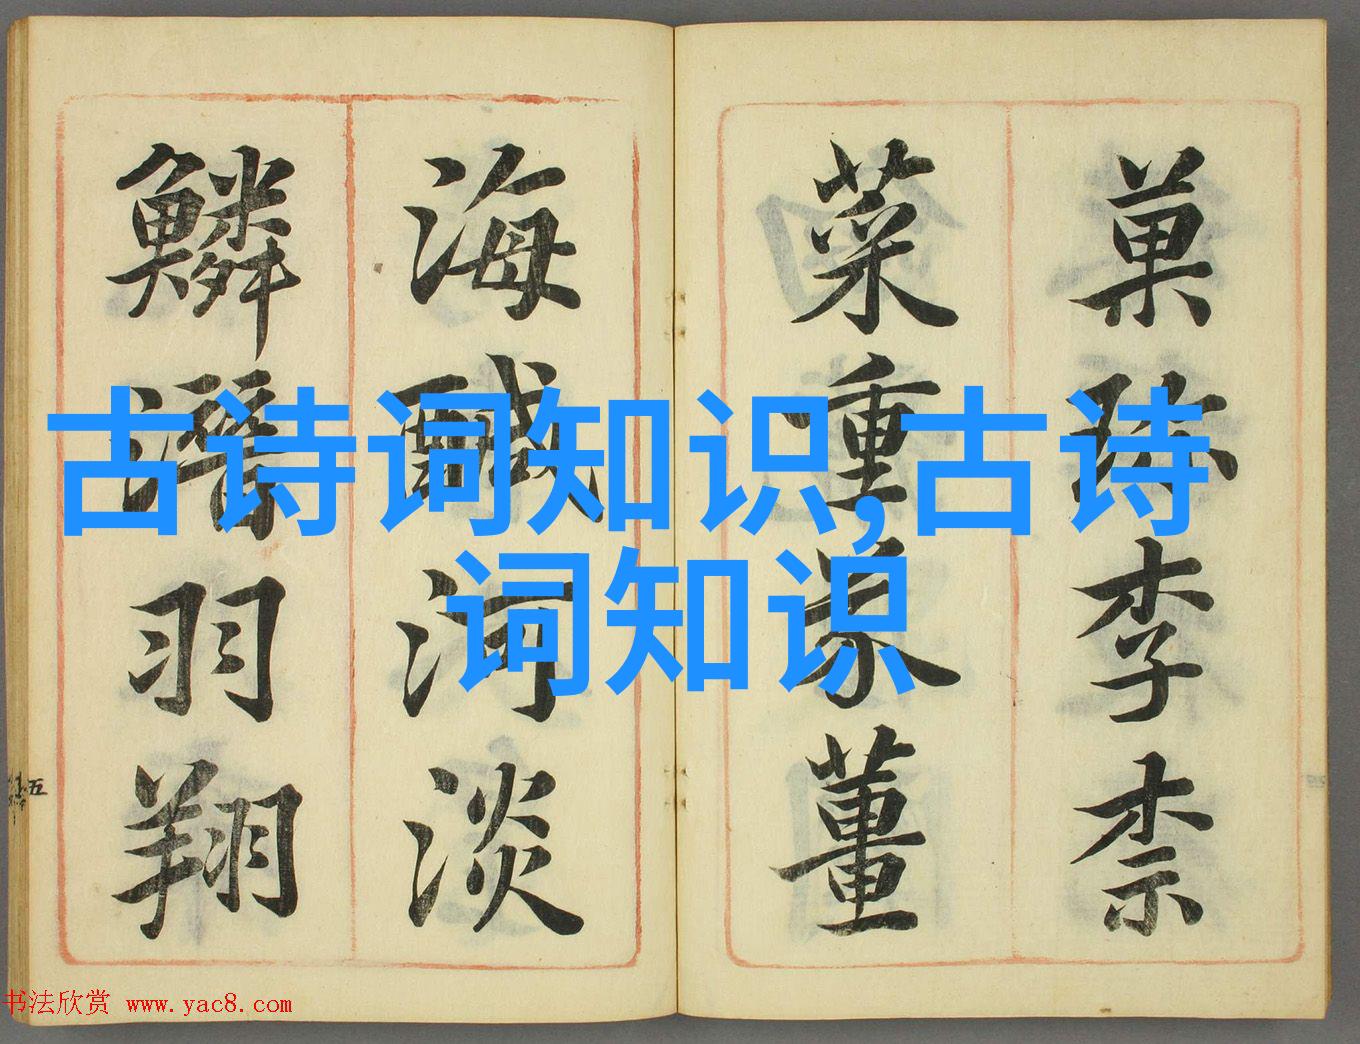 菓珍李柰
菜重芥薑
海醎河淡
鱗潛羽翔
五
古诗词知识,古诗
词知识
书法欣赏 www.yac8.com